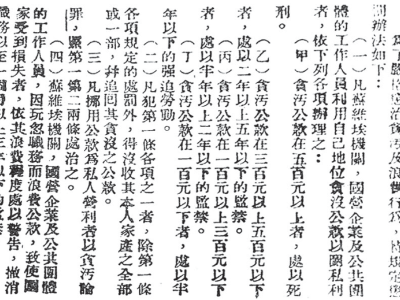 罰辦法如下：
（一）凡蘇維埃機關，國營企業及公共團
體的工作人員利用自己地位貪沒公款以圖私利
者，依下列各項辦理之：
（甲）貪汚公款在五百元以上者，處以死
刑。
（乙）貪汚公款在三百元以上五百元以下
者，處以二年以上五年以下的監禁。
（丙）貪汚公款在一百元以上三百元以下
者，處以半年以上二年以下的監禁。
（丁）貪汚公款在一百元以下者，處以半
年以下的强迫勞動。
（二）凡犯第一條各項之一者，除第一條
各項規定的處罰外，得沒收其本人家產之全部
或一部，幷追囘其貪沒之公款。
（三）凡挪用公款爲私人營利者以貪汚論
罪，照第一第二兩條處治之。
（四）蘇維埃機關，國營企業及公共團體
的工作人員，因玩忽職務而浪費公款，致使國
家受到損失者，依其浪費程度處以警告，撤消
職務以至一個月以上三年以下的